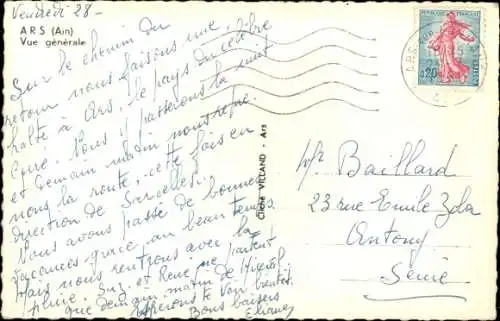 Vendredi 28-
ARS (Ain)
Vue générale
Sur le chemin du
retour nous faisons une
halte à Ars, le pays du célèbre
Curé. Nous y passerons la nuit
et demain matin nous
nous la route, cette fois en
direction de Sarcelles.
Nous avons passé de bonnes
vacances grâce au beau temps
Mais nous rentrons avec la
pluie. Suz. et René ne partent
que demain matin de
Espérons te voir bientôt
Bons baisers
Eliane
Cliché VILLAND - Ars
REPUBLIQUE FRANÇAISE
0,20
POSTES
ARS
Baillard
23 rue Emile Zola
Antony
Seine